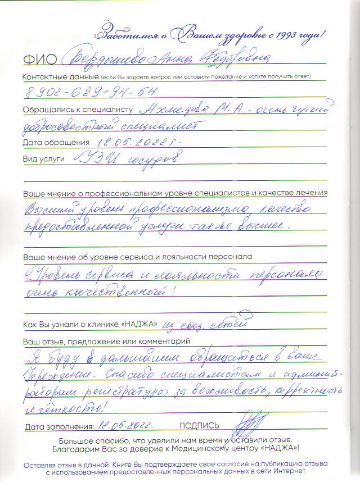 Заботимся о Вашем здоровье с 1993 года!
ФИО Бердышева Анна Фёдоровна
Контактные данные (если Вы задаете вопрос или оставили пожелание и хотите получить ответ)
8902-629-94-64
Обращались к специалисту Ахмедова М.А - очень чуткий
добросовестный специалист
Дата обращения 12.05.2022г.
Вид услуги УЗИ сосудов
Ваше мнение о профессиональном уровне специалистов и качестве лечения
Высший уровень профессионализма, качество
предоставленной услуги также высшее.
Ваше мнение об уровне сервиса и лояльности персонала
Уровень сервиса и лояльности персонала
очень качественный!
Как Вы узнали о клинике «НАДЖА» из соц. сетей
Ваш отзыв, предложение или комментарий
Я буду в дальнейшем обращаться в ваше
Учреждение. Спасибо специалистам и админист-
раторам регистратуры за вежливость, корректность
и чёткость!
Дата заполнения: 12.05.2022 ПОДПИСЬ
Большое спасибо, что уделили нам время и оставили отзыв.
Благодарим Вас за доверие к Медицинскому центру «НАДЖА»!
Оставляя отзыв в данной Книге Вы подтверждаете свое согласие на публикацию отзыва
с использованием предоставленных персональных данных в сети Интернет